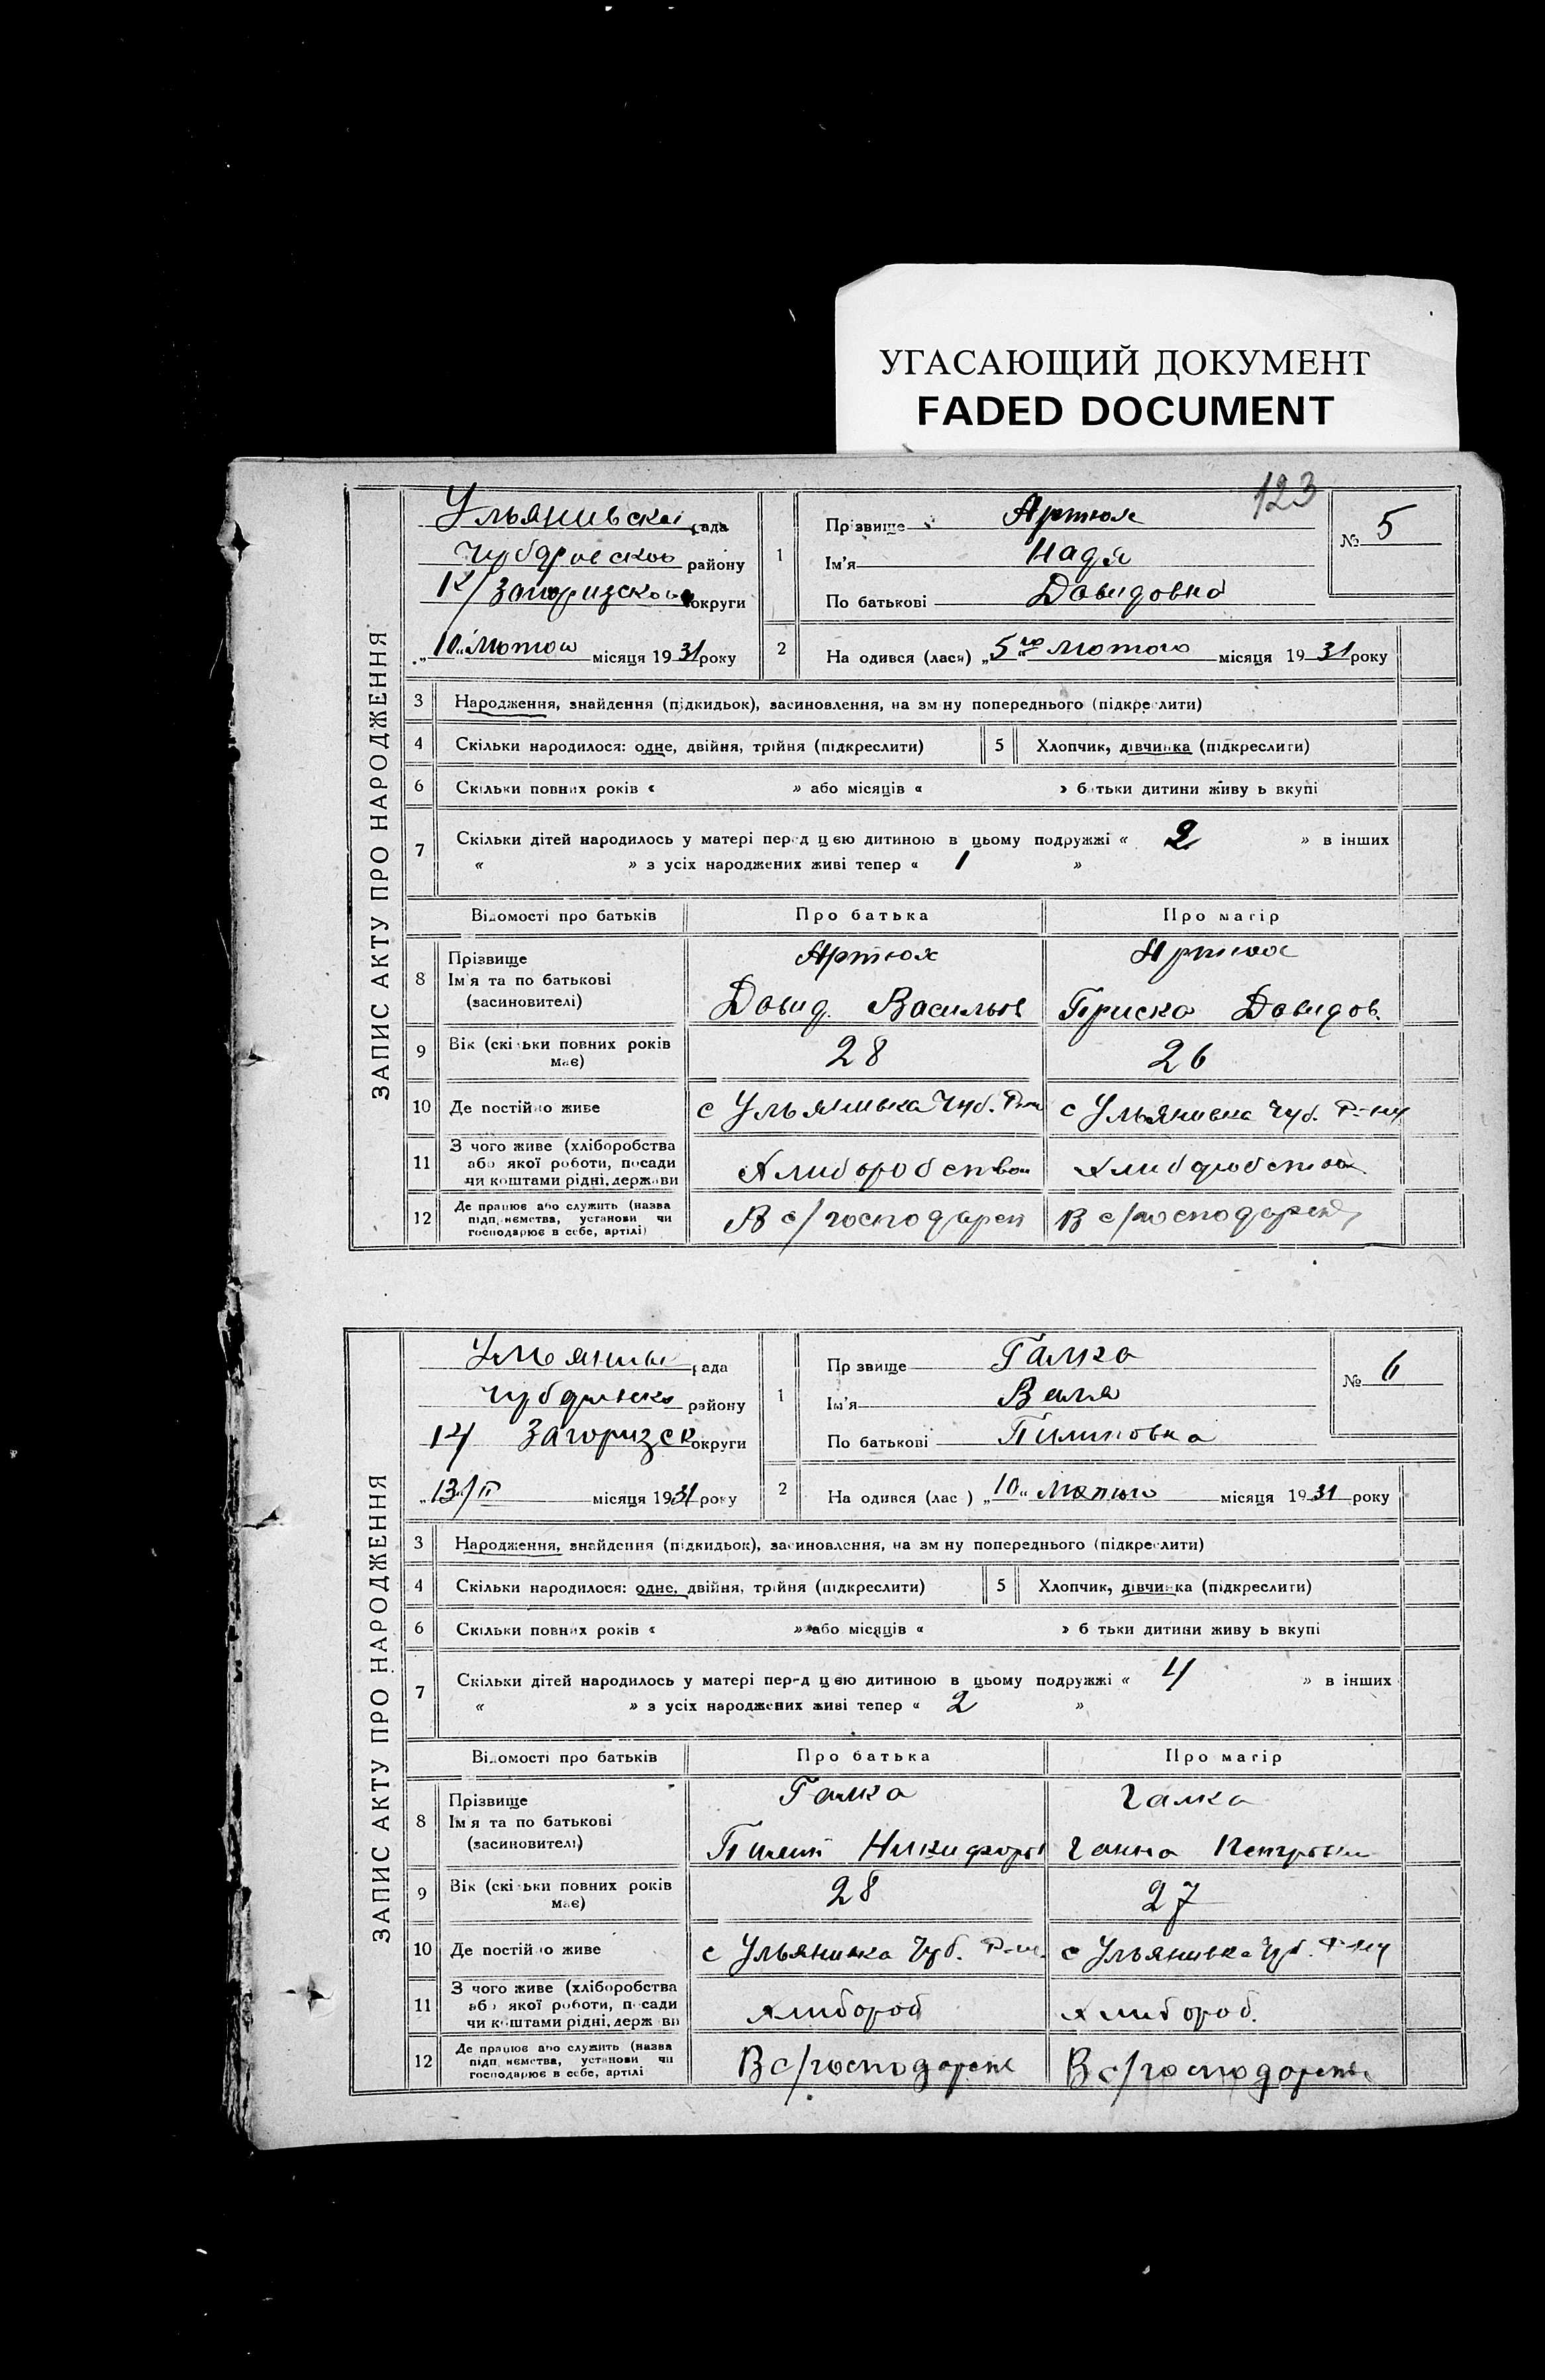 УГАСАЮЩИЙ ДОКУМЕНТ
FADED DOCUMENT
123
ЗАПИС АКТУ ПРО НАРОДЖЕННЯ
Ульянивскаї рада
району
округи
„10„ Лютого місяця 1931 року
1
Прізвище Артюх
Ім'я Надя
По батькові Давидовна
№ 5
2
На одився (лася) „5го Лютого місяця 1931 року
3 Народження, знайдення (підкидьок), засиновлення, на зм ну попереднього (підкреслити)
4 Скільки народилося: одне, двійня, трійня (підкреслити)
5 Хлопчик, дівчинка (підкреслити)
6 Скільки повних років « » або місяців « » батьки дитини живу ь вкупі
7 Скільки дітей народилось у матері перед цією дитиною в цьому подружжі « 2 » в інших
« » з усіх народжених живі тепер « 1 »
Відомості про батьків Про батька Про матір
8 Прізвище
Ім'я та по батькові
(засиновителі)
Артюх
Давид Васильов
Артюх
Приска Давидов.
9 Вік (скільки повних років має)
28
26
10 Де постійно живе
с Ульянивка Чуб. Р-ну
с Ульянивка Чуб. Р-ну
11 З чого живе (хліборобства
або якої роботи, посади
чи коштами рідні, держави
Хлиборобством
Хлиборобством
12 Де працює або служить (назва
підприємства, установи чи
господарює в себе, артілі)
В с/господарст
В с/господарст
ЗАПИС АКТУ ПРО НАРОДЖЕННЯ
рада
району
округи
„13„/II місяця 1931 року
1
Пр звище Галка
Ім'я Валя
По батькові Пилиповна
№ 6
2
На одився (лас ) „10„ Лютого місяця 1931 року
3 Народження, знайдення (підкидьок), засиновлення, на зм ну попереднього (підкреслити)
4 Скільки народилося: одне, двійня, трійня (підкреслити)
5 Хлопчик, дівчинка (підкреслити)
6 Скільки повних років « » або місяців « » б тьки дитини живу ь вкупі
7 Скільки дітей народилось у матері перед цією дитиною в цьому подружжі « 4 » в інших
« » з усіх народжених живі тепер « 2 »
Відомості про батьків Про батька Про матір
8 Прізвище
Ім'я та по батькові
(засиновителі)
Галка
Пилип Никифоров
Галка
Ганна Петровна
9 Вік (скільки повних років має)
28
27
10 Де постійно живе
с Ульянивка Чуб. Р-ну.
с Ульянивка Чуб. Р-ну
11 З чого живе (хліборобства
або якої роботи, посади
чи коштами рідні, держави
хлибороб
хлибороб.
12 Де працює або служить (назва
підприємства, установи чи
господарює в себе, артілі
В с/господарст
В с/господарств